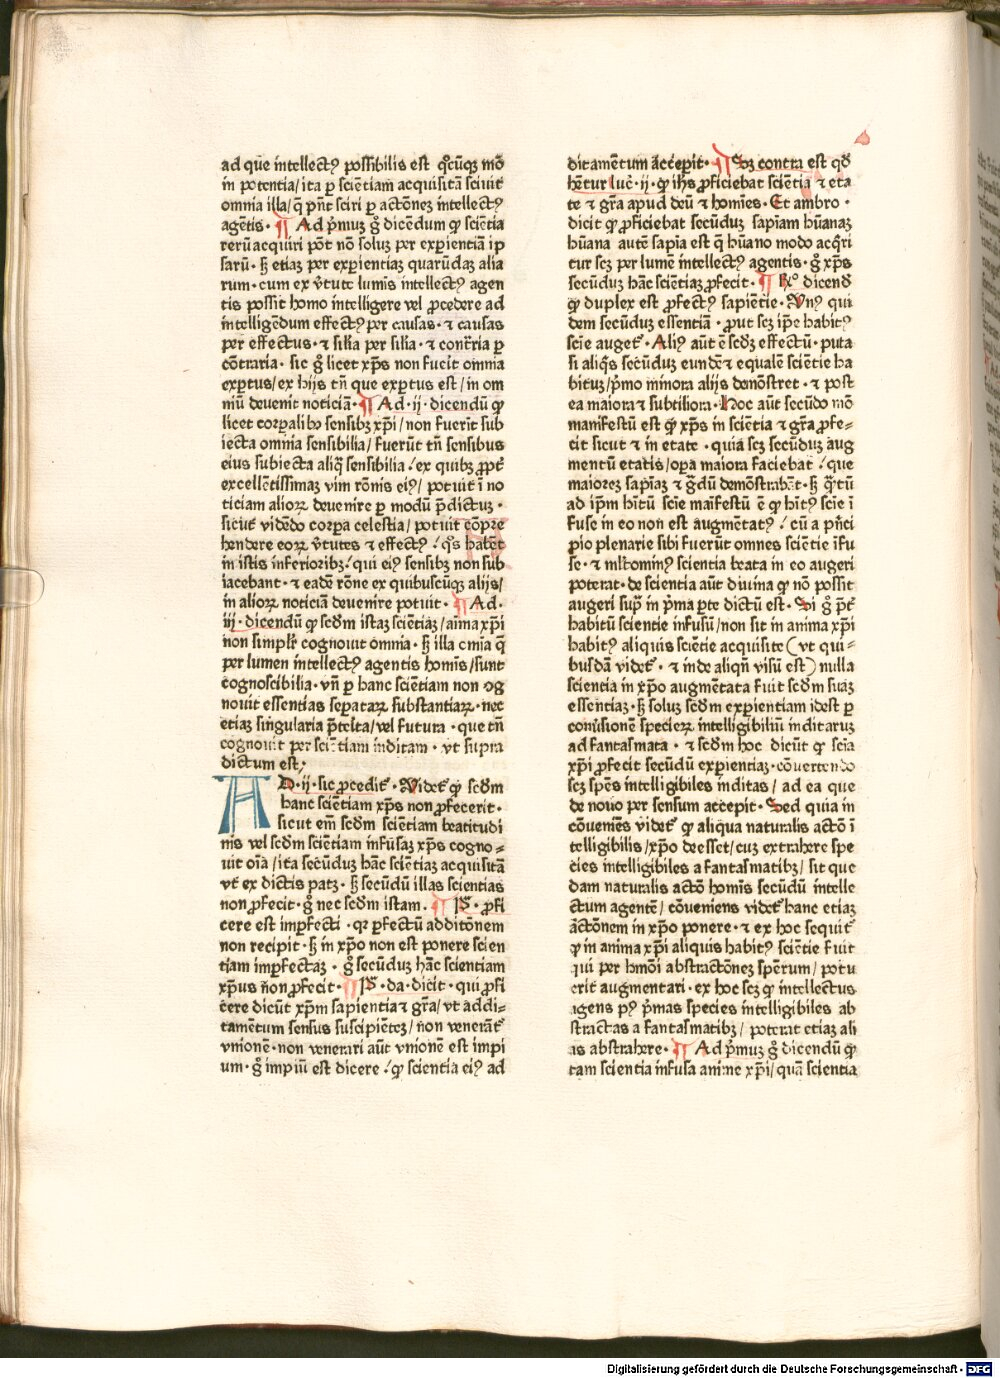 ad que intellectꝰ possibilis est q̊cūqꝫ mō
in potentia/ita ꝑ scientiam acquisitā scivit
omnia illa/q̄ pn̄t sciri ꝑ actōneꝫ intellectꝰ
agētis · ¶ Ad pͥmuꝫ gͦ dicēdum ꝙ sciētia
rerū acquiri pōt nō soluꝫ per experientiā ip
sarū · sꝫ etiaꝫ per experientiaꝫ quarūdaꝫ alia
rum · cum ex v̄tute lumīs intellectꝰ agen
tis possit homo intelligere vel ꝓcedere ad
intelligēdum effectꝰ per causas · ⁊ causas
per effectus · ⁊ silīa per silīa · ⁊ cont̄ria ꝑ
cōtraria · sic gͦ licet xp̄s non fuerit omnia
exꝑtus/ex hijs tn̄ que exꝑtus est/in om
niū devenit noticiā · ¶ Ad · ij · dicendū ꝙ
licet corꝑalibꝰ sensibꝫ xp̄i/non fuerīt sub
iecta omnia sensibilia/fuerūt tn̄ sensibus
eius subiecta aliq̄ sensibilia/ex quibꝫ ꝓpt̄
excellētissimaꝫ vim rōnis eiꝰ/potuit ī no
ticiam alioꝝ devenire ꝑ modū p̄dictuꝫ ·
sicut vidēdo corꝑa celestia/potuit cōpre
hendere eoꝝ v̄tutes ⁊ effectꝰ/q̊s habēt
in istis inferioribꝫ/qui eiꝰ sensibꝫ non sub
iacebant · ⁊ eadē rōne ex quibuscūqꝫ alijs/
in alioꝝ noticiā devenire potuit · ¶ Ad ·
iij · dicendū ꝙ scd̄m istaꝫ sciētiaꝫ/aīma xp̄i
non simplr̄ cognovit omnia · sꝫ illa omīa q̄
per lumen intellectꝰ agentis homīs/sunt
cognoscibilia · vn̄ ꝑ hanc sciētiam non cog
novit essentias seꝑataꝝ substantiaꝝ · nec
etiaꝫ singularia p̄terita/vel futura · que tn̄
cognovit per sciētiam inditam · vt supra
dictum est;
AD · ij · sic ꝓcedit̄ · Videt̄ ꝙ scd̄m
hanc sciētiam xp̄s non ꝓfecerit ·
sicut em̄ scd̄m sciētiam beatitudi
nis vel scd̄m sciētiam infusaꝫ xp̄s cogno⸗
vit oīa/ita secūduꝫ hāc sciētiaꝫ acquisitā
vt̄ ex dictis patꝫ · sꝫ secūdū illas scientias
non ꝓfecit · gͦ nec scd̄m istam · ¶ Pͣ · ꝓfi
cere est imꝑfecti · qꝛ ꝑfectū additōnem
non recipit · sꝫ in xp̄o non est ponere scien
tiam imꝑfectaꝫ · gͦ secūduꝫ hāc scientiam
xp̄us non ꝓfecit · ¶ Pͣ · da · dicit · qui ꝓfi
cere dicūt xp̄m sapientia ⁊ gr̄a/vt addi⸗
tamētum sensus suscipiēteꝫ/non venerāt̄
vnionē · non venerari aūt vnionē est impi
um · gͦ impiū est dicere/ꝙ scientia eiꝰ ad
ditamētum acceperit · ¶ Sꝫ contra est qd̄
hētur luc̄ · ij · ꝙ ih̄s ꝓficiebat sciētia ⁊ eta
te ⁊ gr̄a apud deū ⁊ homīes · Et ambro ·
dicit ꝙ ꝓficiebat secūduꝫ sapīam hūanaꝫ
hūana autē sapīa est q̄ hūano modo acq̄ri
tur scꝫ per lumē intellectꝰ agentis · gͦ xp̄s
secūduꝫ hāc sciētiaꝫ ꝓfecit · ¶ Rͦ · dicend̄
ꝙ duplex est ꝓfectꝰ sapiētie · Vnꝰ qui
dem secūduꝫ essentiā · ꝓut scꝫ ip̄e habitꝰ
scīe auget̄ · Aliꝰ aūt ē scd̄ꝫ effectū · puta
si aliq̄s secūduꝫ eundē ⁊ equalē sciētie ha
bituꝫ/pͥmo minora alijs demōstret · ⁊ post
ea maiora ⁊ subtiliora · Hoc aūt secūdo mō
manifestū est ꝙ xp̄s in sciētia ⁊ gr̄a ꝓfe⸗
cit sicut ⁊ in etate · quia scꝫ secūduꝫ aug
mentū etatis/oꝑa maiora faciebat/que
maiorem sapīaꝫ ⁊ gr̄dū demōstrabāt · sꝫ q̄tū
ad ip̄m hītū scīe maīfestū ē ꝙ hītꝰ scīe ī
fuse in eo non est augmētatꝰ/cū a pͥnci
pio plenarie sibi fuerūt omnes sciētie īfu
se · ⁊ mltominꝰ scientia beata in eo augeri
poterat · de scientia aūt divina ꝙ non possit
augeri supͣ in pͥma ꝑte dictū est · Si gͦ p̄t̄
habitū scientie infusū/non sit in anima xp̄i
habitꝰ aliquis sciētie acquisite (vt qui⸗
busdā videt̄ · ⁊ inde aliqn̄ visū est) nulla
scientia in xp̄o augmētata fuit scd̄m suaꝫ
essentiaꝫ · sꝫ soluꝫ scd̄m experientiam idest ꝑ
conv̄sionē specieꝝ intelligibiliū inditaruꝫ
ad fantasmata · ⁊ scd̄m hoc dicūt ꝙ scīa
xp̄i ꝓfecit secūdū experientiaꝫ · cōvertendo
scꝫ spēs intelligibiles inditas/ad ea que
de novo per sensum accepit · Sed quia in
cōveniēs videt̄ ꝙ aliqua naturalis actō ī
telligibilis/xp̄o deesset/cuꝫ extrahere spe
cies intelligibiles a fantasmatibꝫ/sit que
dam naturalis actō homīs secūdū intelle
ctum agentē/cōveniens videt̄ hanc etiaꝫ
actōnem in xp̄o ponere · ⁊ ex hoc sequit̄
ꝙ in anima xp̄i aliquis habitꝰ sciētie fuit
qui per hmōi abstractōneꝫ spērum/potu
erit augmentari · ex hoc scꝫ ꝙ intellectus
agens pꝰ pͥmas species intelligibiles ab
stractas a fantasmatibꝫ/poterat etiaꝫ ali
as abstrahere · ¶ Ad pͥmuꝫ gͦ dicendū ꝙ
tam scientia infusa anime xp̄i/quā scientia
Digitalisierung gefördert durch die Deutsche Forschungsgemeinschaft - DFG